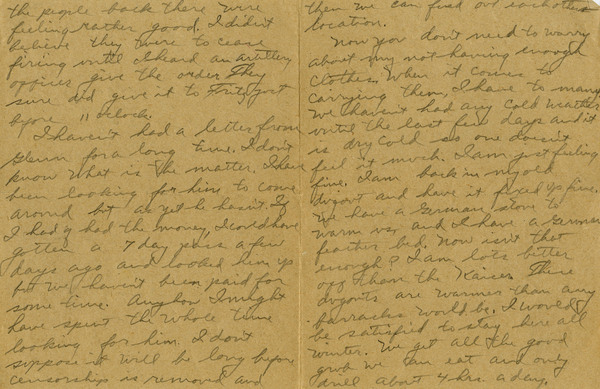 the people back there were
feeling rather good. I didn't
believe they were to cease
firing until I heard an artillery
officer give the order. They
sure did give it to Fritz just
before 11 o'clock.
I haven't had a letter from
Glenn for a long time. I don't
know what is the matter. I have
been looking for him to come
around but as yet he hasn't. If
I had had the money, I could have
gotten a 7 day pass a few
days ago and looked him up
but we haven't been paid for
some time. Anyhow I might
have spent the whole time
looking for him. I don't
suppose it will be long before
censorship is removed and
then we can find out each others
location.
Now you don't need to worry
about my not having enough
clothes. When it comes to
carrying them, I have to many.
We haven't had any cold weather
until the last few days and it
is dry cold so one doesn't
feel it much. I am just feeling
fine. I am back in my old
dugout and have it fixed up fine.
We have a German stove to
warm us, and I have a German
feather bed. Now isn't that
enough? I am lots better
off than the Kaiser. These
dugouts are warmer than any
barracks would be. I would
be satisfied to stay here all
winter. We get all the good
grub we can eat and only
drill about 4 hrs. a day.